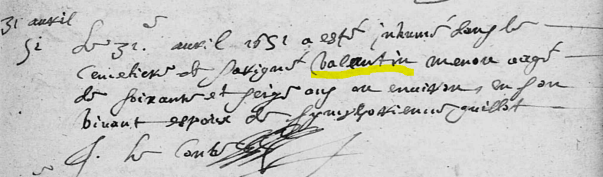 31 avril
Si Le 31e avril 1651 a esté inhumé dans le
Cemetiere de Savigné Valentin menon aagé
de soixante et seize ans ou environ, en son
vivant espoux de Symphorienne guillot
Le Conte